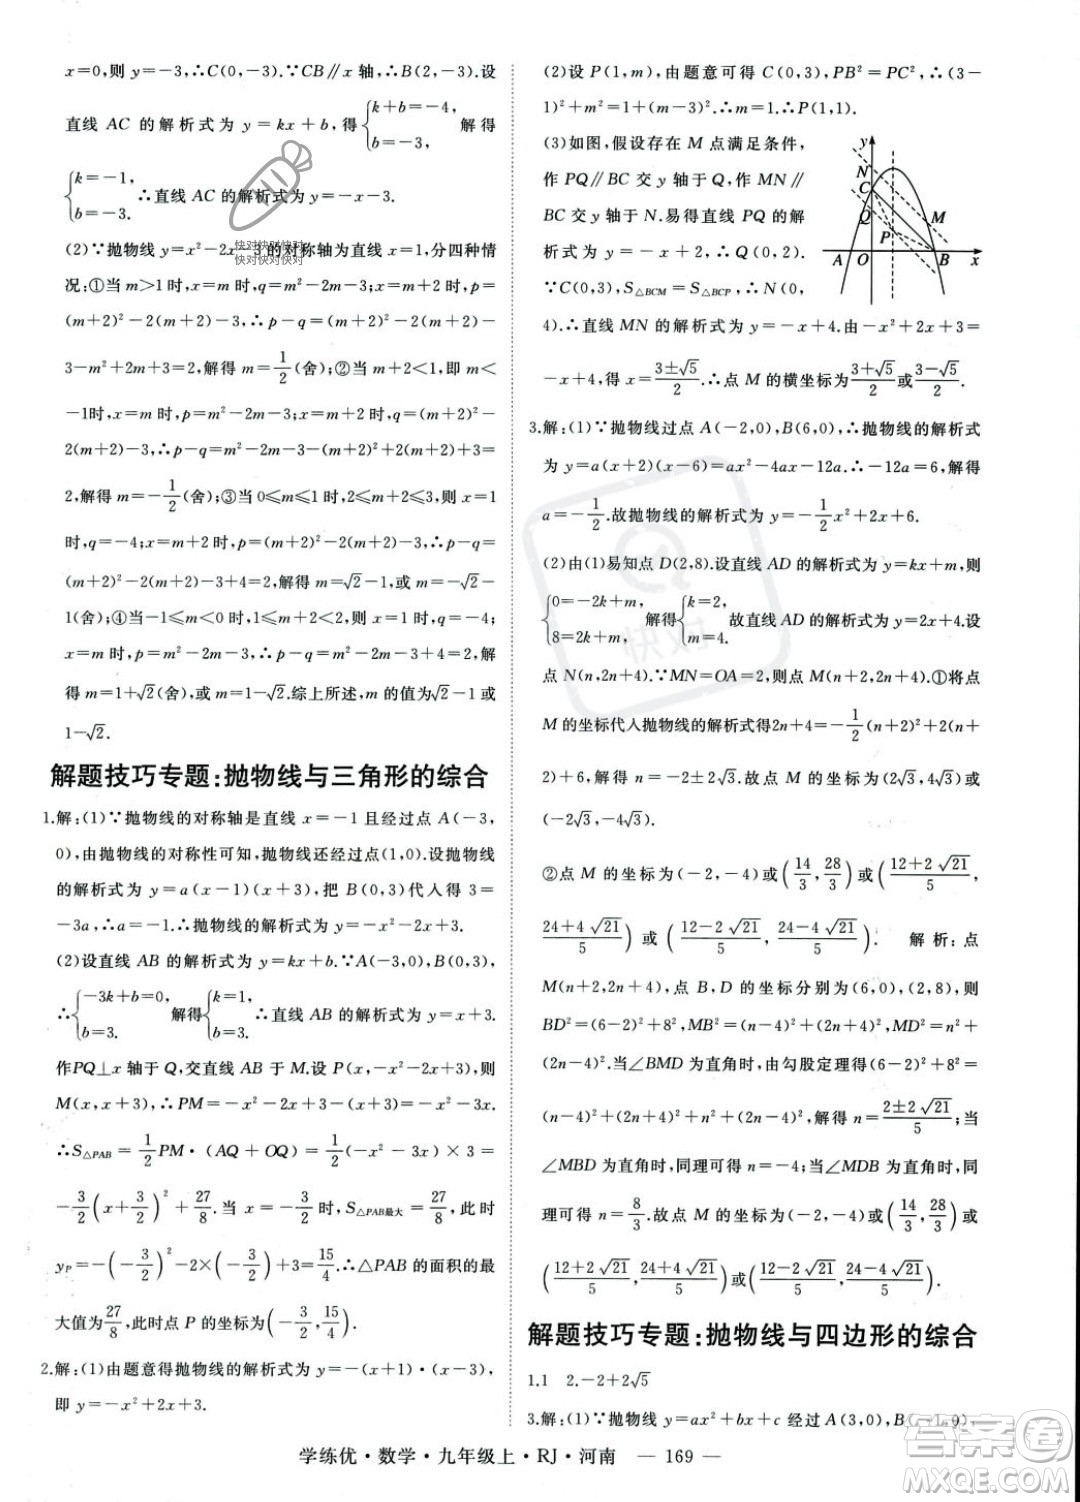 x=0,则 y=-3,∴C(0,-3).∵CB∥x 轴,∴B(2,-3).设
直线 AC 的解析式为 y=kx+b,得{k+b=-4, b=-3, 解得
{k=-1, b=-3. ∴直线 AC 的解析式为 y=-x-3.
(2)∵抛物线 y=x²-2x-3 的对称轴为直线 x=1,分四种情
况:①当 m>1 时,x=m 时,p=m²-2m-3;x=m+2 时,q=
(m+2)²-2(m+2)-3,∴q-p=(m+2)²-2(m+2)-
3-m²+2m+3=2,解得 m=1/2(舍);②当 m+2<1,即 m<
-1时,x=m 时,p=m²-2m-3;x=m+2 时,q=(m+2)²-
2(m+2)-3,∴p-q=m²-2m-3-(m+2)²+2(m+2)+3=
2,解得 m=-1/2(舍);③当 0≤m≤1 时,当 x=1
时,q=-4;当 x=m+2 时,p=(m+2)²-2(m+2)-3,
∴p-q=(m+2)²-2(m+2)-3+4,解得 m=√2-1,或 m=-√2-
1(舍);④当-1≤m≤0 时,当 x=1 时,q=-4;
当 x=m 时,p=m²-2m-3,∴p-q=m²-2m-3+4=2,解
得 m=1+√2(舍),或 m=1-√2.综上所述,m 的值为√2-1 或
1-√2.
解题技巧专题:抛物线与三角形的综合
1.解:(1)∵抛物线的对称轴是直线 x=-1 且经过点 A(-3,
0),由抛物线的对称性可知,抛物线还经过点(1,0).设抛物线
的解析式为 y=a(x-1)(x+3),把 B(0,3)代入得 3=
-3a,∴a=-1.∴抛物线的解析式为 y=-x²-2x+3.
(2)设直线 AB 的解析式为 y=kx+b.∵A(-3,0),B(0,3),
∴{-3k+b=0, b=3. 解得{k=1, b=3. ∴直线 AB 的解析式为 y=x+3.
作PQ⊥x 轴于 Q,交直线 AB 于 M,设 P(x,-x²-2x+3),则
M(x,x+3),∴PM=-x²-2x+3-(x+3)=-x²-3x.
∴S△PAB=1/2PM·(AQ+OQ)=1/2(-x²-3x)×3=
-3/2(x+3/2)²+27/8.当 x=-3/2时,S△PAB最大=27/8,此时
yP=-(-3/2)²-2×(-3/2)+3=15/4.∴△PAB 的面积的最
大值为27/8,此时点 P 的坐标为(-3/2,15/4).
2.解:(1)由题意得抛物线的解析式为 y=-(x+1)·(x-3),
即 y=-x²+2x+3.
(2)设 P(1,m),由题意可得 C(0,3),PB²=PC²,∴(3-
1)²+m²=1+(m-3)².∴m=1.∴P(1,1).
(3)如图,假设存在 M 点满足条件,
作 PQ∥BC 交 y 轴于 Q,作 MN∥
BC 交 y 轴于 N.易得直线 PQ 的解
析式为 y=-x+2,∴Q(0,2).
∵C(0,3),S△BCM=S△BCP,∴N(0,
4).∴直线 MN 的解析式为 y=-x+4.由-x²+2x+3=
-x+4,得 x=(3±√5)/2.∴点 M 的横坐标为(3+√5)/2或(3-√5)/2.
y
N
C
Q
M
P
A
O
B
x
3.解:(1)∵抛物线过点 A(-2,0),B(6,0),∴抛物线的解析式
为 y=a(x+2)(x-6)=ax²-4ax-12a.∴-12a=6,解得
a=-1/2.故抛物线的解析式为 y=-1/2x²+2x+6.
(2)由(1)易知点 D(2,8).设直线 AD 的解析式为 y=kx+m,则
{0=-2k+m, 8=2k+m, 解得{k=2, m=4. 故直线 AD 的解析式为 y=2x+4.设
点 N(n,2n+4).∵MN=OA=2,则点 M(n+2,2n+4).①将点
M 的坐标代入抛物线的解析式得2n+4=-1/2(n+2)²+2(n+
2)+6,解得 n=-2±2√3.故点 M 的坐标为(2√3,4√3)或
(-2√3,-4√3).
②点 M 的坐标为(-2,-4)或(14/3,28/3)或((12+2√21)/5,
(24+4√21)/5)或((12-2√21)/5,(24-4√21)/5). 解析:点
M(n+2,2n+4),点 B,D 的坐标分别为(6,0),(2,8),则
BD²=(6-2)²+8²,MB²=(n-4)²+(2n+4)²,MD²=n²+
(2n-4)².当∠BMD 为直角时,由勾股定理得(6-2)²+8²=
(n-4)²+(2n+4)²+n²+(2n-4)²,解得 n=(2±2√21)/5;当
∠MBD 为直角时,同理可得 n=-4;当∠MDB 为直角时,同
理可得 n=8/3.故点 M 的坐标为(-2,-4)或(14/3,28/3)或
((12+2√21)/5,(24+4√21)/5)或((12-2√21)/5,(24-4√21)/5).
解题技巧专题:抛物线与四边形的综合
1.1 2.-2+2√5
3.解:(1)∵抛物线 y=ax²+bx+c 经过 A(3,0),B(-1,0),
学练优·数学·九年级上·RJ·河南 — 169 —
快对快对快对
快对快对快对
快对
答案圈
MXQE.COM